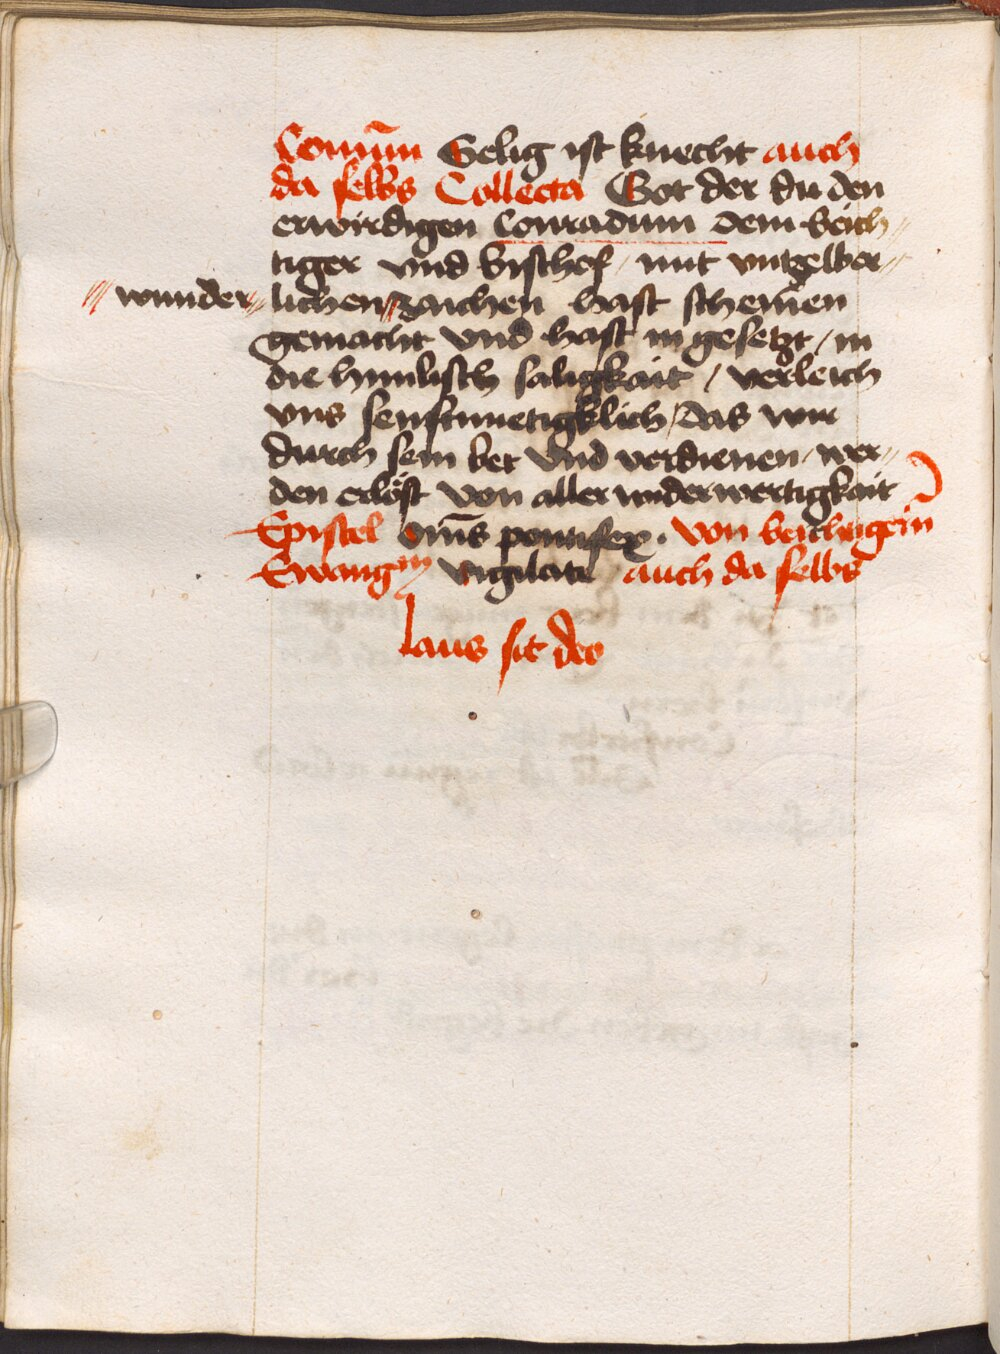 Comūn Selig ist knecht auch
da selbs Collecta Got der du den
erwirdigen Conradum dem beich⸗
tiger vnd bischof / mit vntzelber⸗
wunder⸗ lichen zaichen hast scheinen
gemacht vnd hast in gesetzt / in
die himlisch saligkait / verleich
vns senftmuetigklich / das wir
durch sein bet vnd verdienen / wer⸗
den erlöst von aller widerwertigkait
Epistel Om̄s pontifex . von beichtigern
Ewangm vigilate auch da selbs
laus sit deo